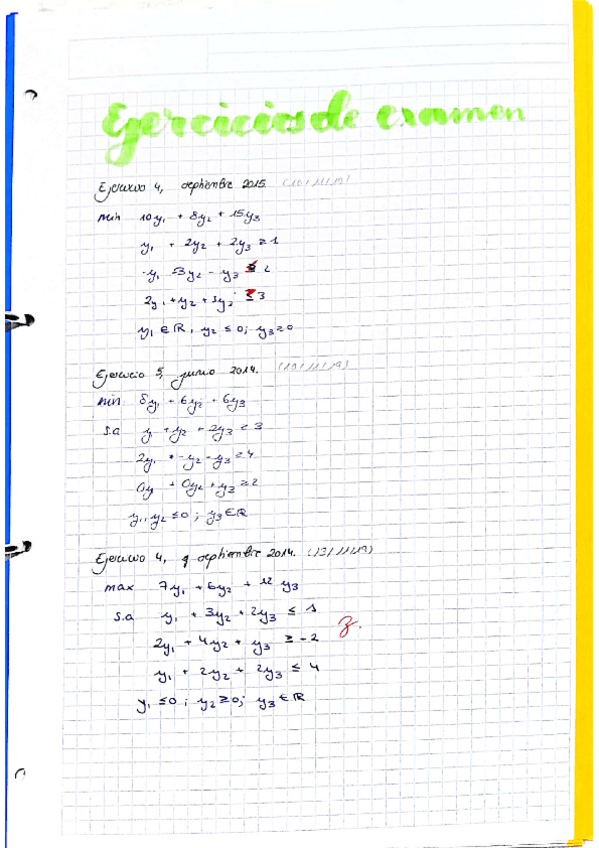 Ejercicios de examen
Ejercicio 4, septiembre 2015. (10/11/19)
min 10y₁ + 8y₂ + 15y₃
y₁ + 2y₂ + 2y₃ ≥ 1
-y₁ - 3y₂ - y₃ 2
2y₁ + y₂ + 3y₃ ≤ 3
y₁ ∈ ℝ, y₂ ≤ 0; y₃ ≥ 0
Ejercicio 5, junio 2014. (10/11/19)
min 8y₁ + 6y₂ + 6y₃
s.a y₁ + y₂ + 2y₃ 3
2y₁ + -y₂ - y₃ = 4
0y + 0y₂ + y₃ ≥ 2
y₁, y₂ ≤ 0; y₃ ∈ ℝ
Ejercicio 4, septiembre 2014. (13/11/19)
max 7y₁ + 6y₂ + 12y₃
s.a y₁ + 3y₂ + 2y₃ ≤ 1
2y₁ + 4y₂ + y₃ ≥ -2
y₁ + 2y₂ + 2y₃ ≤ 4
y₁ ≤ 0; y₂ ≥ 0; y₃ ∈ ℝ